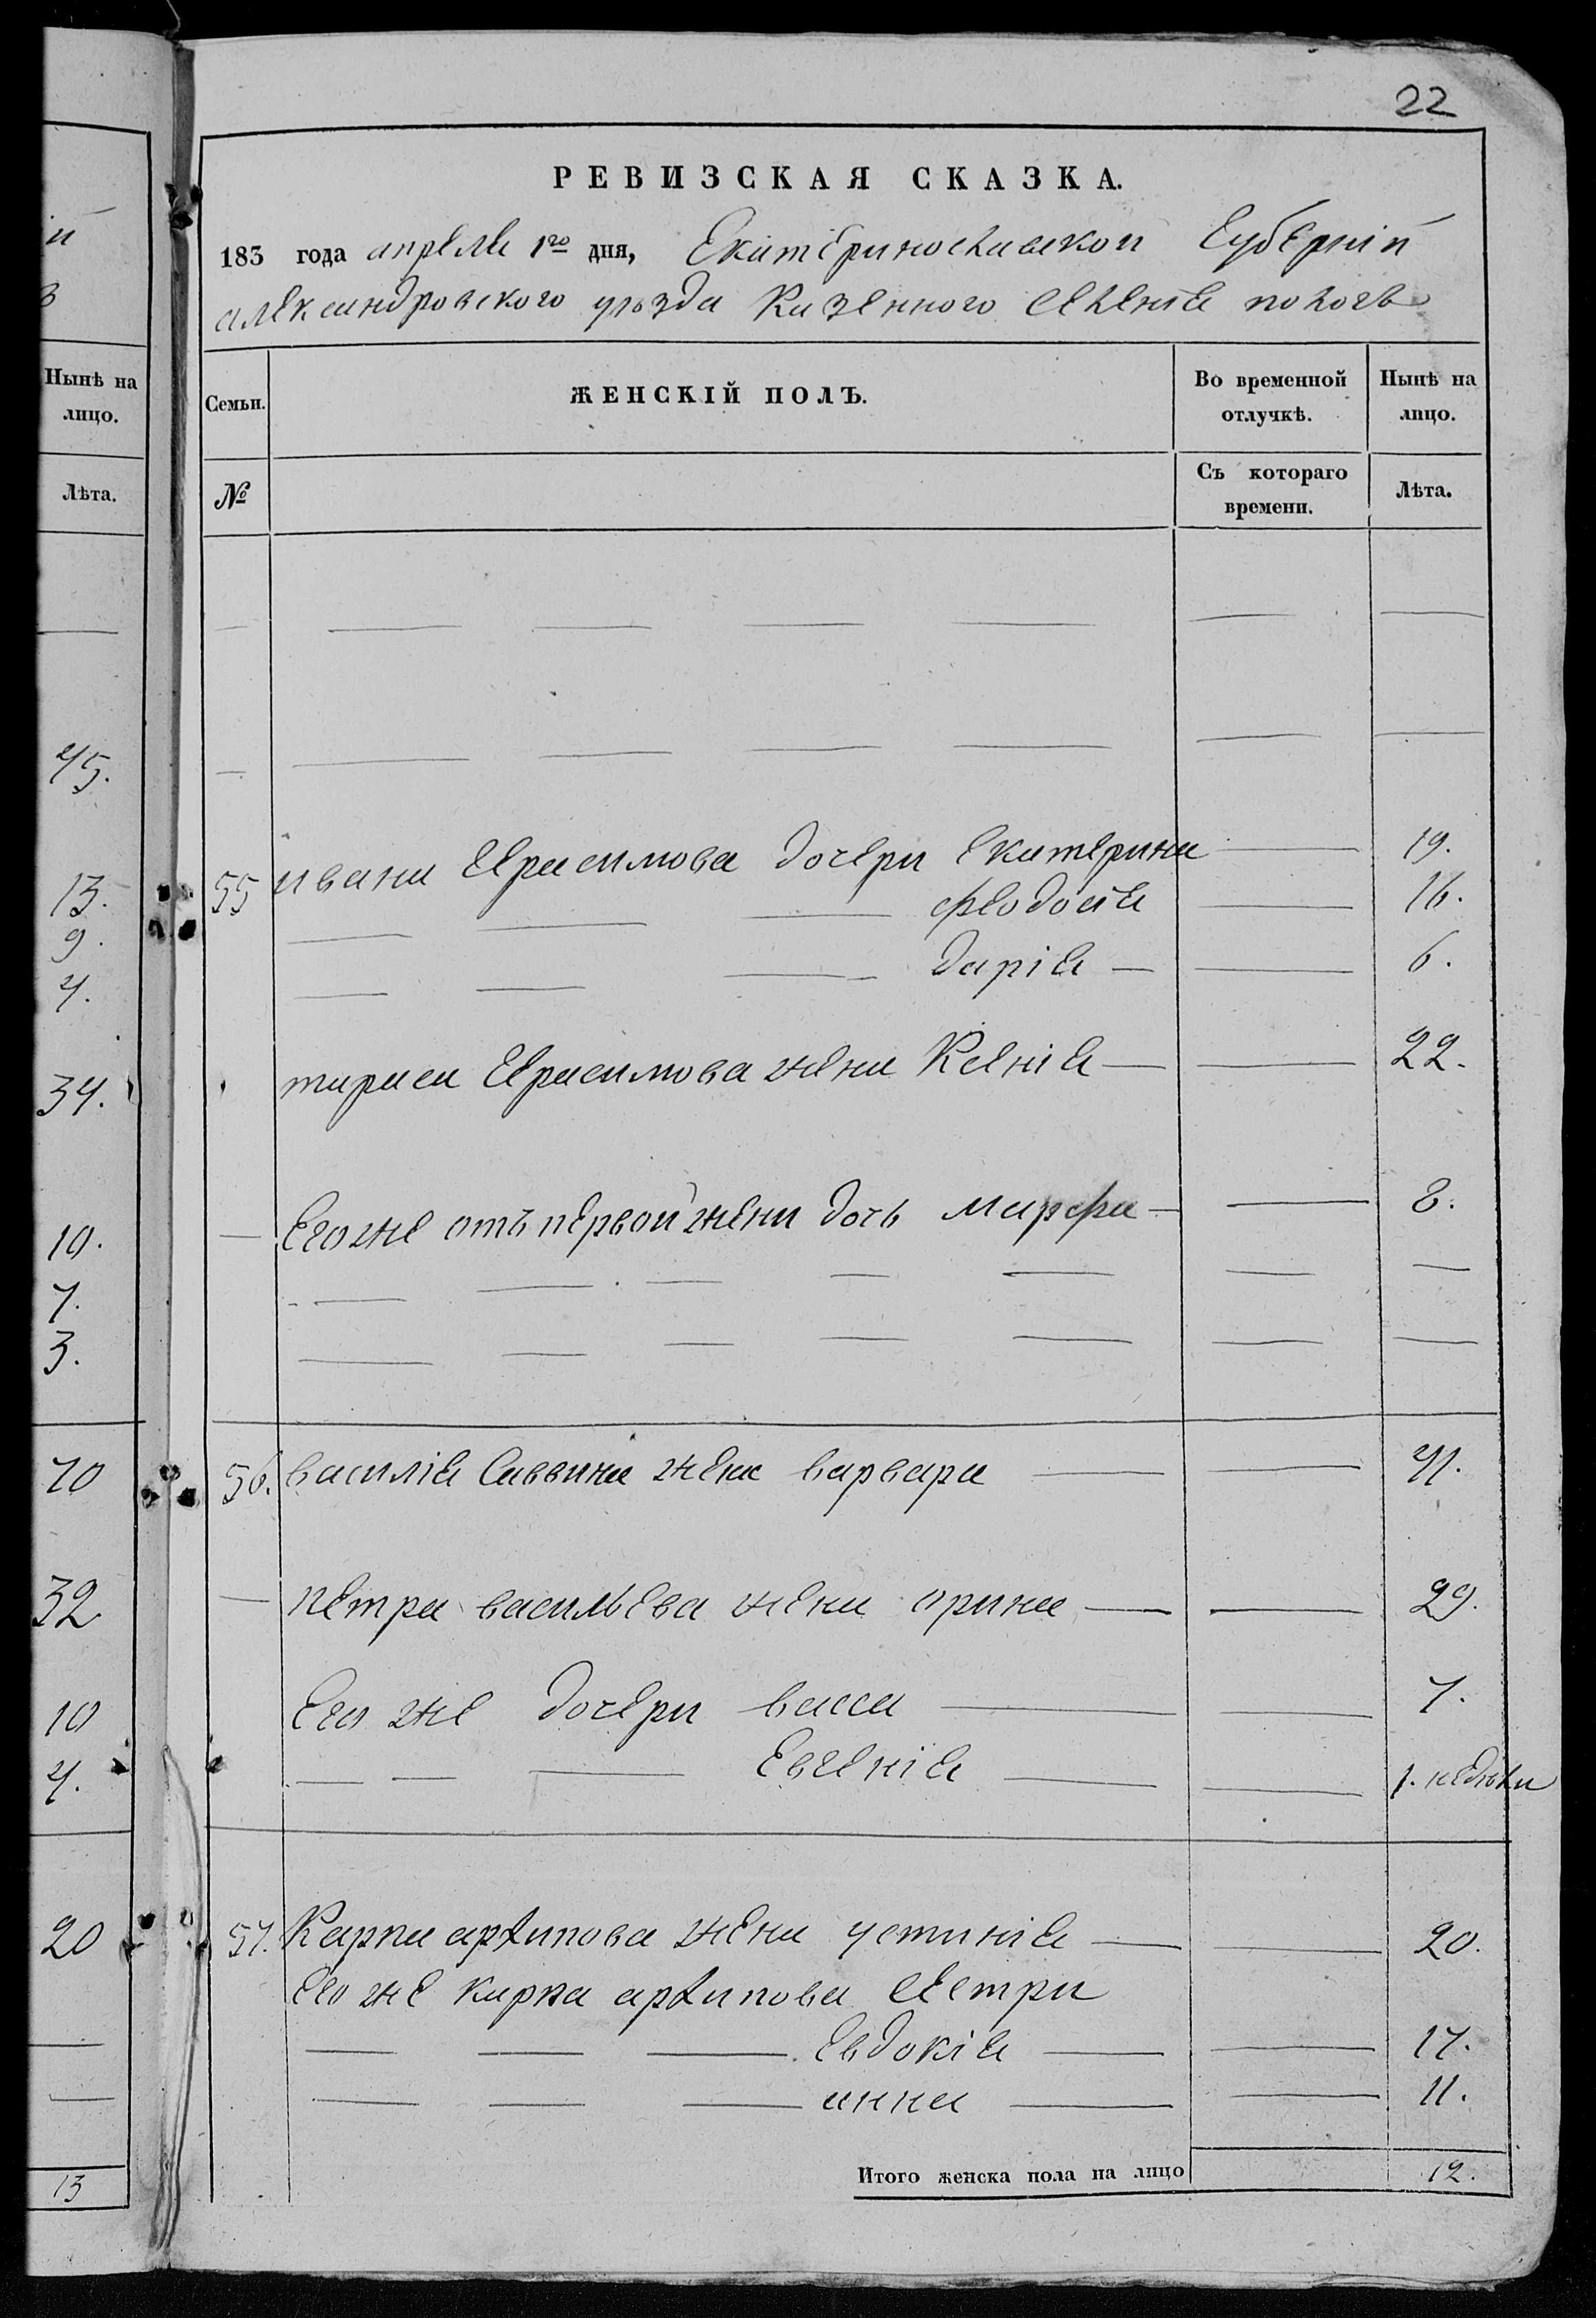 22
РЕВИЗСКАЯ СКАЗКА.
183 года апреля 1го дня, Екатериносливской Губерній
александровского уѣзда Казенного селенія пологъ
Семьи.
ЖЕНСКІЙ ПОЛЪ.
Во временной отлучкѣ.
Нынѣ на лицо.
№
Съ котораго времени.
Лѣта.
55 ивана Герасимова дочери Екатерина — 19.
— — — феодосія — 16.
— — — дарія — 6.
тараса Герасимова жена Ксенія — 22.
Его же отъ первой жени дочь марфа — 8.
56. василія Саввина жена варвара — 41.
петра васильева жена орина — 29.
Его же дочери васса — 7.
— — — Евгенія — 1. недѣли
57. Карпа архипова жена устинія — 20.
Его же карпа архипова сестри
— — — Евдокія — 17.
— — — анна — 11.
Итого женска пола на лицо 12.
й
в
Нынѣ на лицо.
Лѣта.
45.
13.
9.
4.
34.
10.
7.
3.
70
32
10
4.
20
13